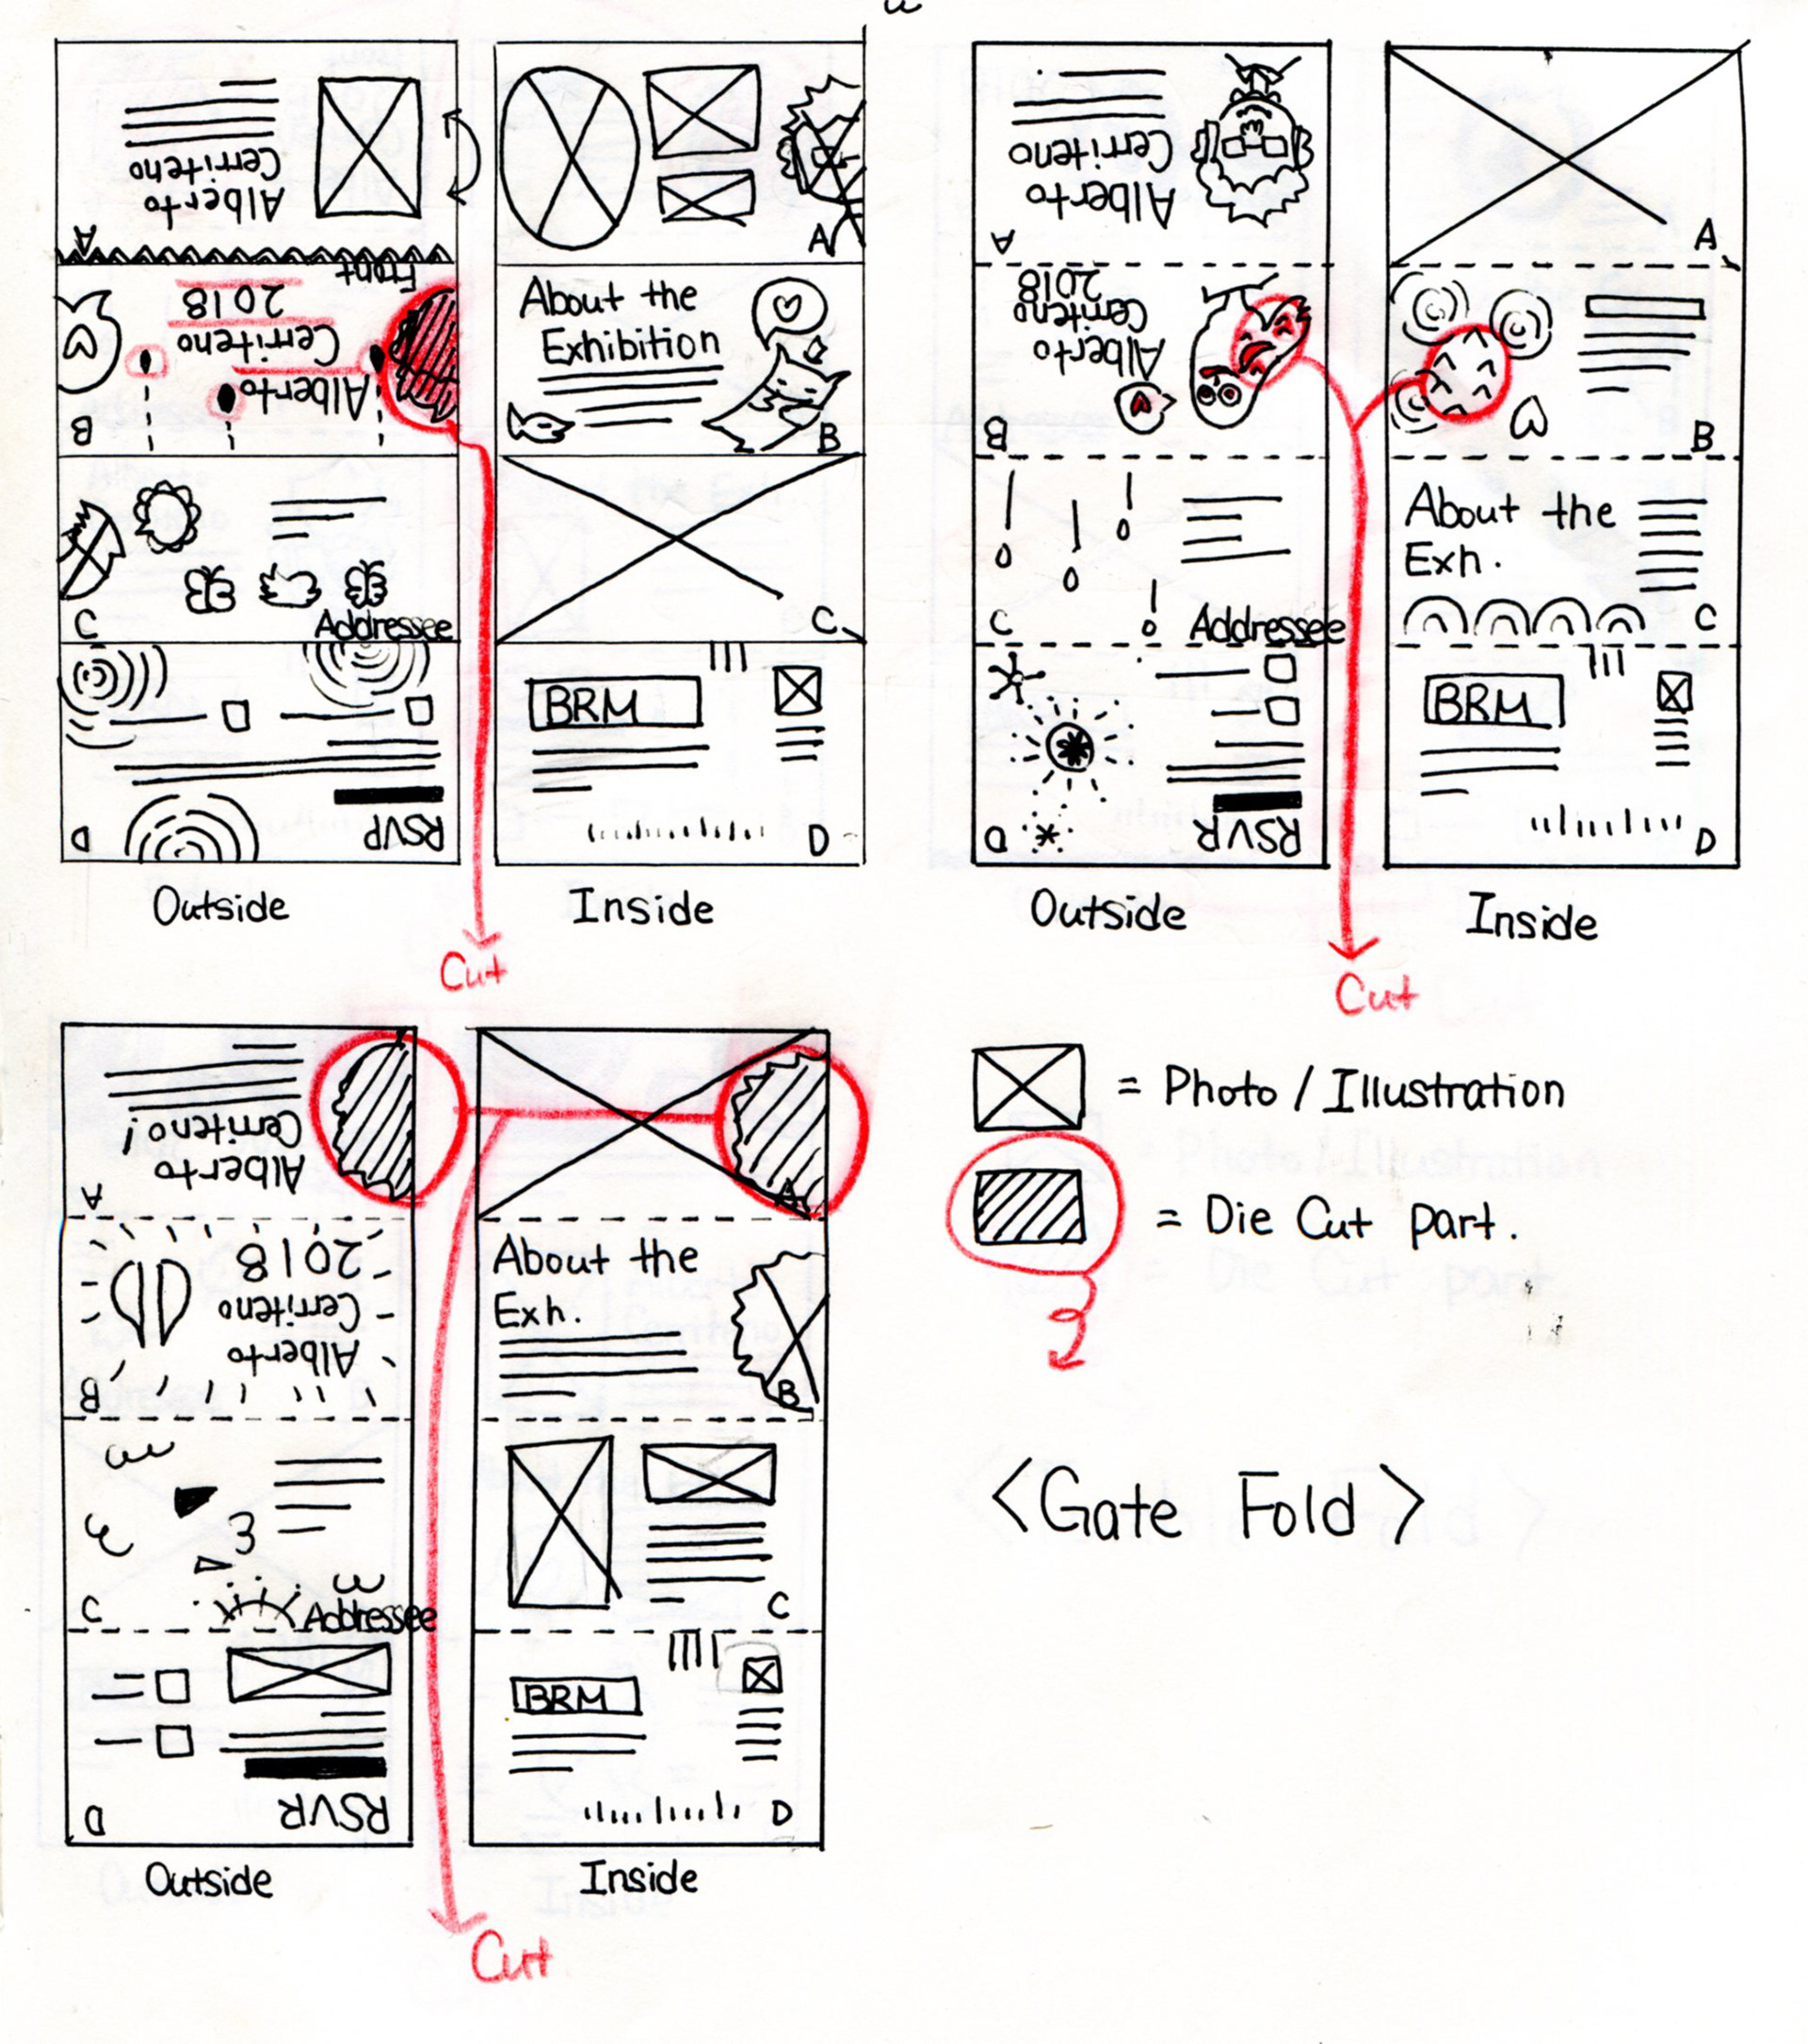 Alberto
Cerriteno
A
Front
Alberto
Cerriteno
2018
B
C
Addressee
RSVP
D
Outside
A
About the
Exhibition
B
C
BRM
D
Inside
Cut
Alberto
Cerriteno
A
Alberto
Cerriteno
2018
B
C
Addressee
RSVR
D
Outside
A
B
About the
Exh.
C
BRM
D
Inside
Cut
Alberto
Cerriteno!
A
Alberto
Cerriteno
2018
B
C
Addressee
RSVR
D
Outside
A
About the
Exh.
B
C
BRM
D
Inside
Cut
= Photo / Illustration
= Die Cut part.
<Gate Fold>